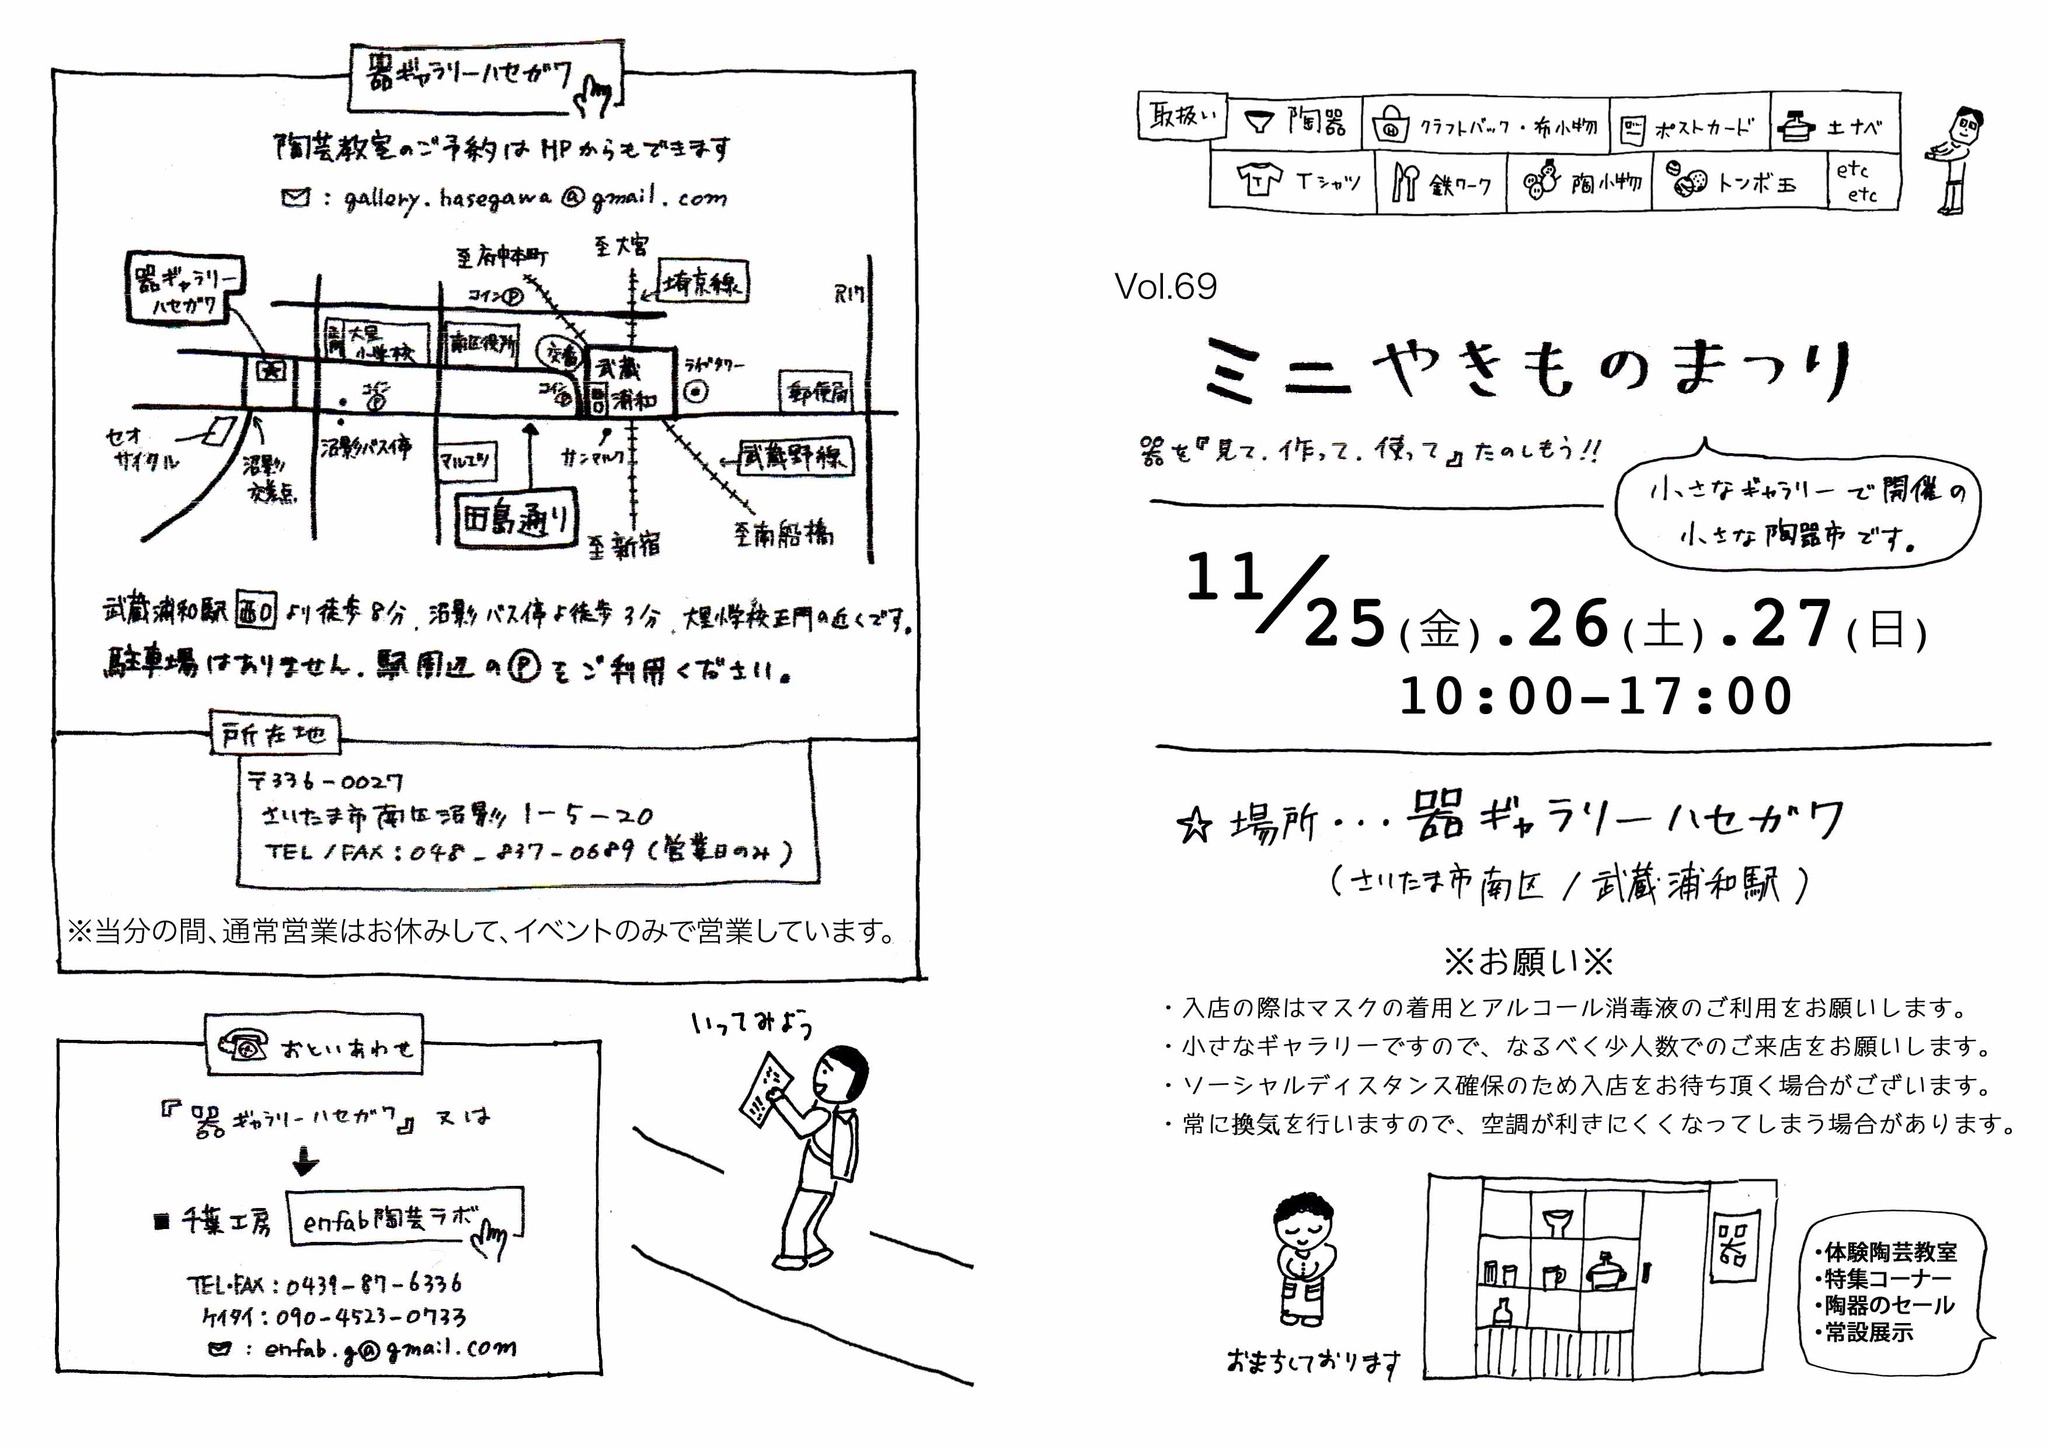 器ギャラリーハセガワ
陶芸教室のご予約はHPからもできます
: gallery.hasegawa@gmail.com
至府中本町
至大宮
埼京線
R17
器ギャラリー
ハセガワ
コインP
正門
大里
小学校
南区役所
交番
武蔵
浦和
西口
ラムザタワー
郵便局
コイン
P
コイン
P
セオ
サイクル
沼影
交差点
沼影バス停
マルエツ
サンマルク
武蔵野線
田島通り
至新宿
至南船橋
武蔵浦和駅 西口 より徒歩8分、沼影バス停より徒歩3分、大里小学校正門の近くです。
駐車場はありません。駅周辺のPをご利用ください。
所在地
〒336-0027
さいたま市南区沼影1-5-20
TEL/FAX:048-837-0689(営業日のみ)
※当分の間、通常営業はお休みして、イベントのみで営業しています。
おといあわせ
『器ギャラリーハセガワ』又は
■千葉工房 enfab陶芸ラボ
TEL・FAX:0439-87-6336
ケイタイ:090-4523-0733
: enfab.g@gmail.com
いってみよう
取扱い 陶器 クラフトバック・布小物 ポストカード 土ナベ
Tシャツ 鉄ワーク 陶小物 トンボ玉 etc
etc
Vol.69
ミニやきものまつり
器を『見て、作って、使って』たのしもう!!
小さなギャラリーで開催の
小さな陶器市です。
11/25(金).26(土).27(日)
10:00-17:00
☆場所・・・器ギャラリーハセガワ
(さいたま市南区/武蔵浦和駅)
※お願い※
・入店の際はマスクの着用とアルコール消毒液のご利用をお願いします。
・小さなギャラリーですので、なるべく少人数でのご来店をお願いします。
・ソーシャルディスタンス確保のため入店をお待ち頂く場合がございます。
・常に換気を行いますので、空調が利きにくくなってしまう場合があります。
器
・体験陶芸教室
・特集コーナー
・陶器のセール
・常設展示
おまちしております